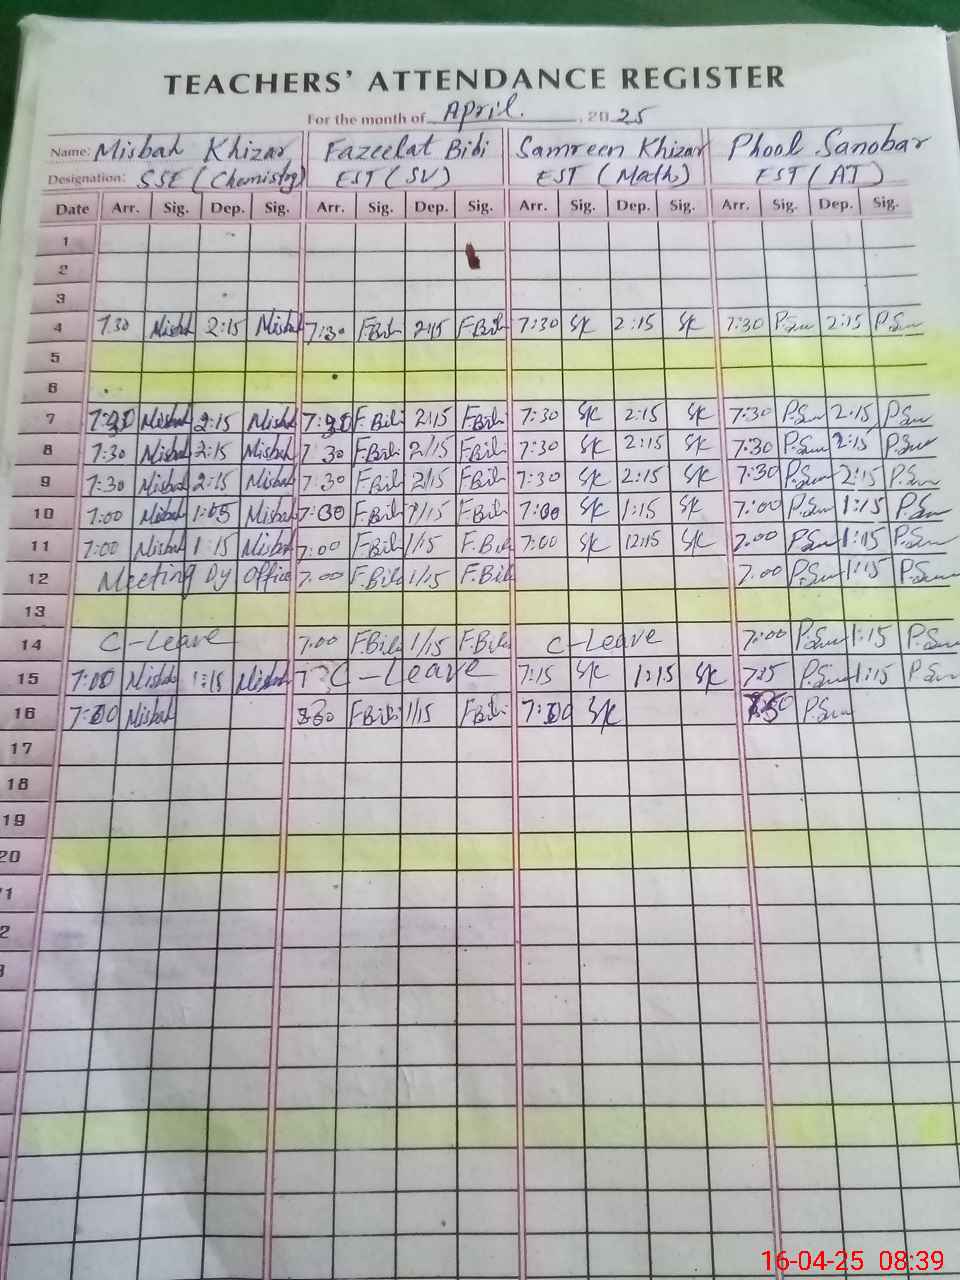 TEACHERS' ATTENDANCE REGISTER
For the month of April. , 20 25
Name: Misbah Khizar Fazeelat Bibi Samreen Khizar Phool Sanobar
Designation: SSE (Chemistry) EST (SV) EST (Math) EST (AT)
Date Arr. Sig. Dep. Sig. Arr. Sig. Dep. Sig. Arr. Sig. Dep. Sig. Arr. Sig. Dep. Sig.
1
2
3
4 7:30 Misbah 2:15 Misbah 7:30 F.Bibi 2:15 F.Bibi 7:30 SK 2:15 SK 7:30 2:15
5
6
7 Misbah 2:15 Misbah F.Bibi 2:15 F.Bibi 7:30 SK 2:15 SK 7:30 2:15
8 7:30 Misbah 2:15 Misbah 7:30 F.Bibi 2/15 F.Bibi 7:30 SK 2:15 SK 7:30 2:15
9 7:30 Misbah 2:15 Misbah 7:30 F.Bibi 2/15 F.Bibi 7:30 SK 2:15 SK 7:30 2:15
10 7:00 Misbah Misbah F.Bibi F.Bibi 7:00 SK 1:15 SK 7:00 1:15
11 7:00 Misbah 1:15 Misbah 7:00 F.Bibi 1/15 F.Bibi 7:00 SK SK 7:00 1:15
12 Meeting Dy Office 7:00 F.Bibi 1/15 F.Bibi 7.00 1:15
13
14 C-Leave 7:00 F.Bibi 1/15 F.Bibi C-Leave 7:00 1:15
15 7:00 Misbah 1:15 Misbah C-Leave 7:15 SK 1:15 SK 1:15
16 Misbah F.Bibi 1/15 F.Bibi SK
17
18
19
20
16-04-25 08:39